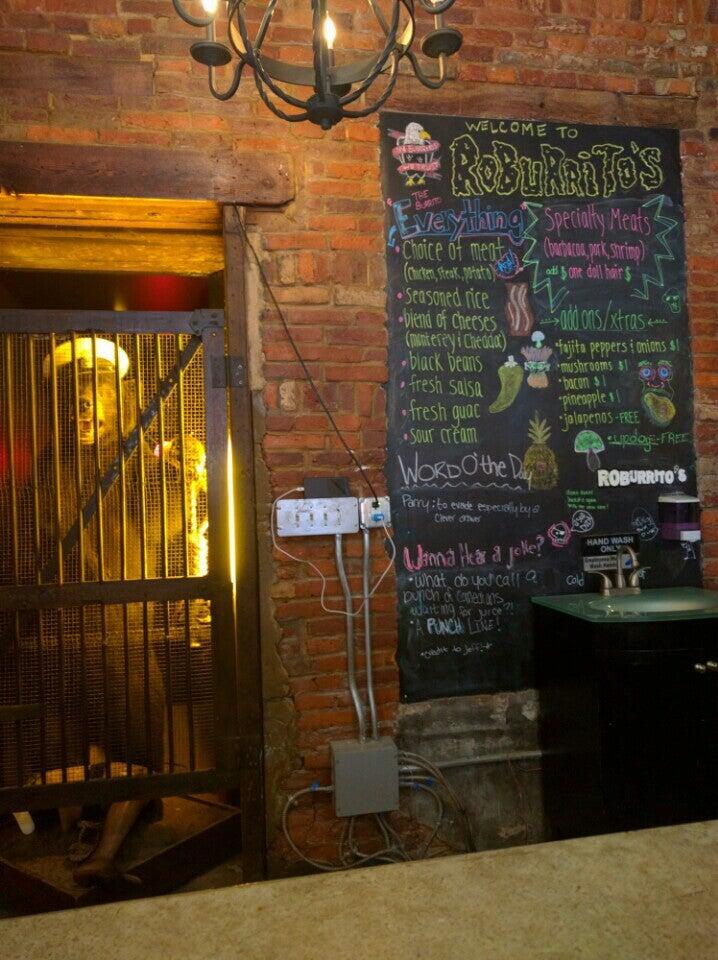 WELCOME TO
RoBURRiTo'S
THE
BURRITO
Everything
Choice of meat
(chicken, steak, potato)
seasoned rice
blend of cheeses
(monterey & cheddar)
black beans
fresh salsa
fresh guac
sour cream
Specialty Meats
(barbacoa, pork, shrimp)
add $ one doll hair $
add ons/xtras
fajita peppers & onions $1
mushrooms $1
bacon $1
pineapple $1
jalapenos -FREE
updoge-FREE
ROBURRITO'S
WORD O' the Day
Parry: to evade especially by a
clever answer
Wanna Hear a joke?
what do you call a
bunch of comedians
waiting for juice?!
A PUNCH LINE!
*credit to Jeff*
HAND WASH
ONLY
Employees Must
Wash Hands
Cold